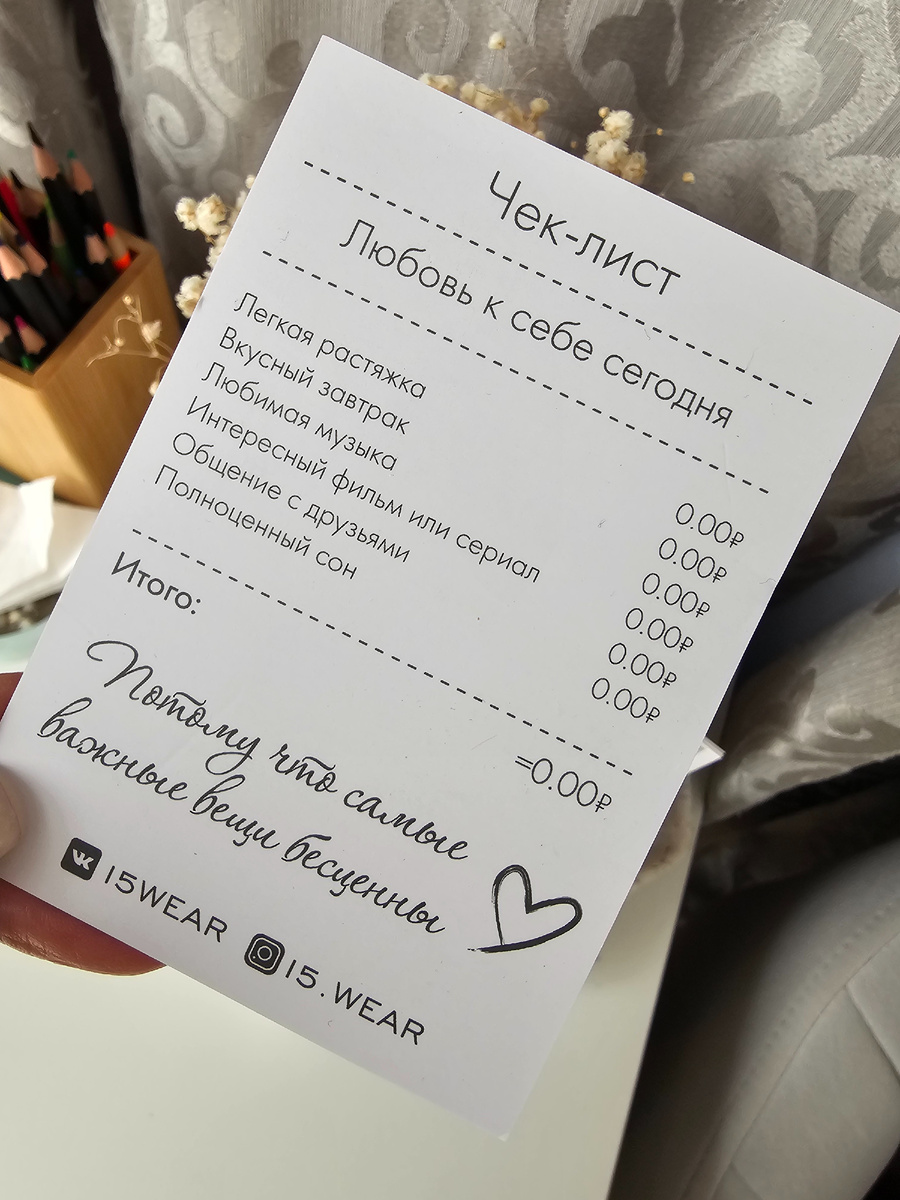 Чек-лист
Любовь к себе сегодня
Легкая растяжка 0.00₽
Вкусный завтрак 0.00₽
Любимая музыка 0.00₽
Интересный фильм или сериал 0.00₽
Общение с друзьями 0.00₽
Полноценный сон 0.00₽
Итого: =0.00₽
Потому что самые
важные вещи бесценны
15WEAR 15.WEAR